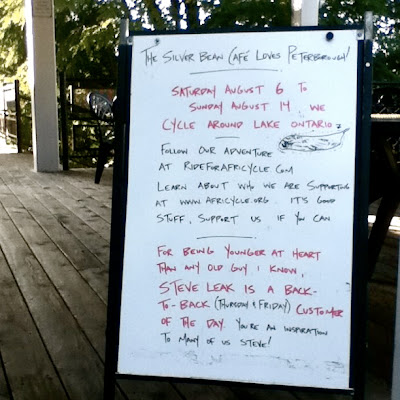 THE SILVER BEAN CAFÉ LOVES PETERBOROUGH!
SATURDAY AUGUST 6 TO
SUNDAY AUGUST 14, WE
CYCLE AROUND LAKE ONTARIO
FOLLOW OUR ADVENTURE
AT RIDEFORAFRICYCLE.COM
LEARN ABOUT WHO WE ARE SUPPORTING
AT WWW.AFRICYCLE.ORG. IT'S GOOD
STUFF, SUPPORT US IF YOU CAN
FOR BEING YOUNGER AT HEART
THAN ANY OLD GUY I KNOW,
STEVE LEAK IS A BACK-
TO-BACK (THURSDAY & FRIDAY) CUSTOMER
OF THE DAY. YOU'RE AN INSPIRATION
TO MANY OF US STEVE!